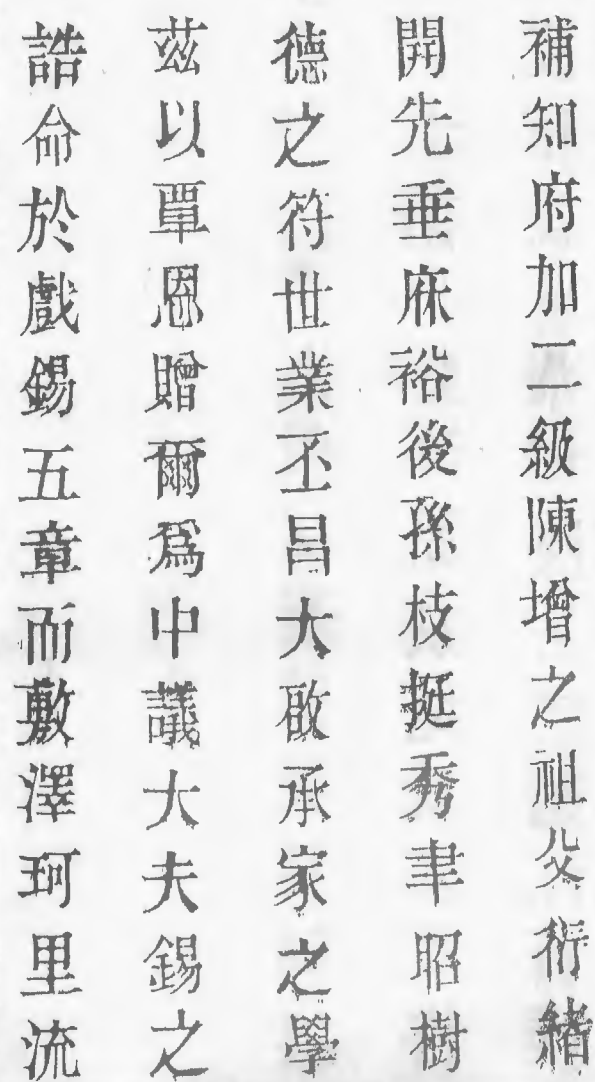 補知府加二級陳增之祖父衍緒
開先垂庥裕後孫枝挺秀聿昭樹
德之符世業丕昌大啟承家之學
茲以覃恩贈爾爲中議大夫錫之
誥命於戲錫五章而敷澤珂里流